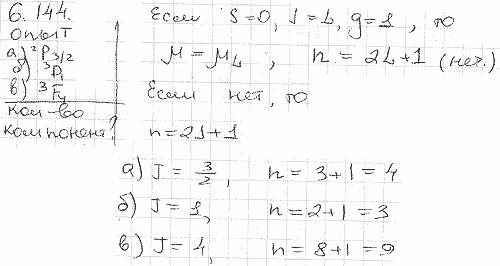 6.144.
опыт
а) ²P3/2
б) ³P1
в) ³F4
кол-во
компонент?
Если S=0, J=L, g=1, то
μ = μL, n = 2L+1 (неч.)
Если нет, то
n=2J+1
а) J = 3/2, n = 3+1 = 4
б) J = 1, n = 2+1 = 3
в) J = 4, n = 8+1 = 9